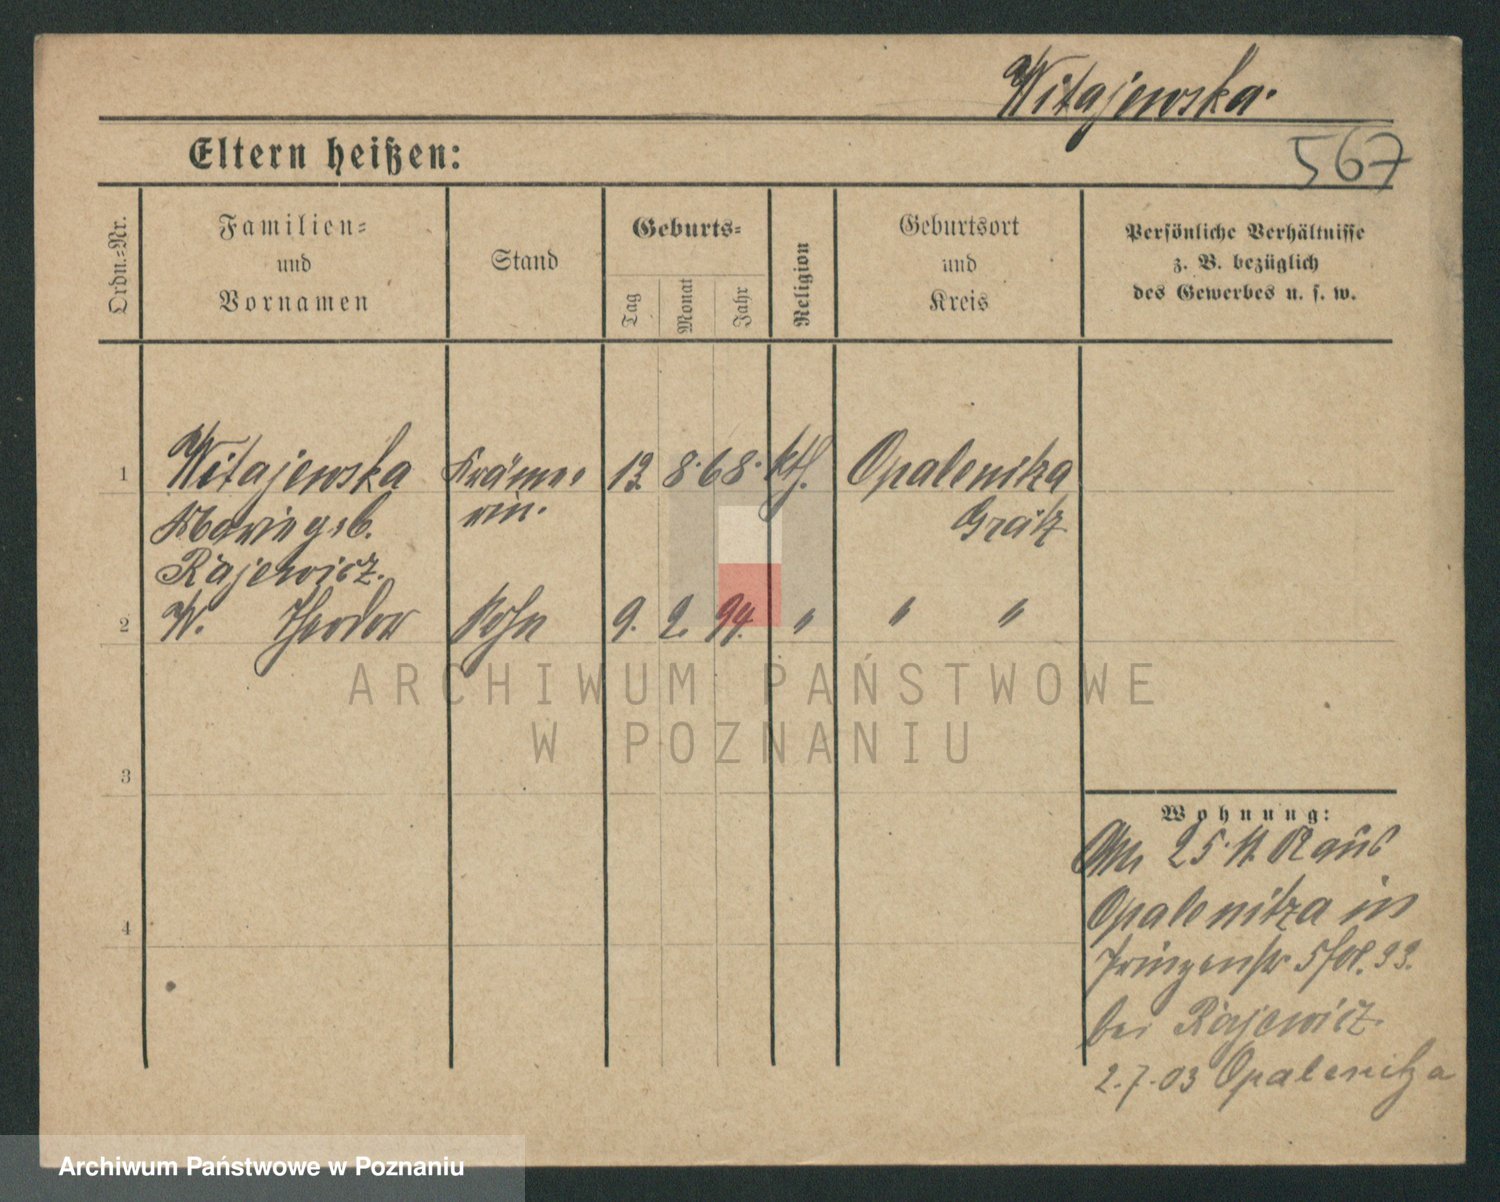 Witajewska.
567
Eltern heißen:
Ordn.=Nr.
Familien=
und
Vornamen
Stand
Geburts=
Tag
Monat
Jahr
Religion
Geburtsort
und
Kreis
Persönliche Verhältnisse
z. B. bezüglich
des Gewerbes u. s. w.
1 Witajewska Kräme- 13. 8. 68. kth. Opalenitza
Marie geb. rin. Grätz
Rajewicz.
2 W. Theodor Sohn 9. 2. 94. " " "
ARCHIWUM PAŃSTWOWE
W POZNANIU
3
4
Wohnung:
25. 11. 02 aus
Opalenitza in
Prinzenstr 5
bei Rajewicz.
2.7.03 Opalenitza
Archiwum Państwowe w Poznaniu